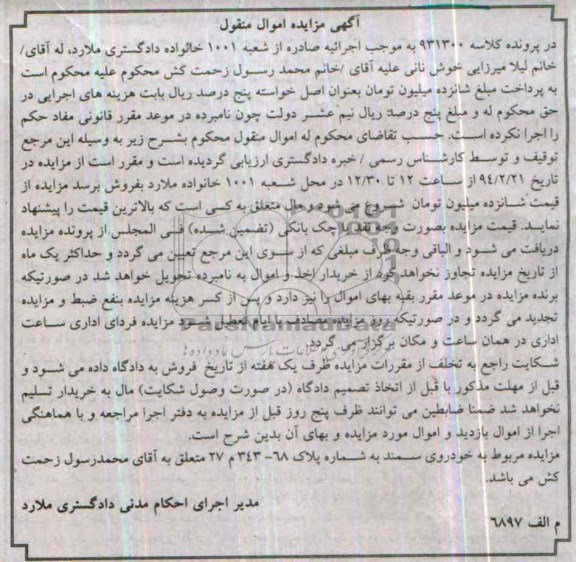 آگهی مزایده اموال منقول
در پرونده کلاسه ۹۳۱۳۰۰ به موجب اجرائیه صادره از شعبه ۱۰۰۱ خانواده دادگستری ملارد، له آقای/
خانم لیلا میرزایی خوش نانی علیه آقای /خانم محمد رسول زحمت کش محکوم علیه محکوم است
به پرداخت مبلغ شانزده میلیون تومان بعنوان اصل خواسته پنج درصد ریال بابت هزینه های اجرایی در
حق محکوم له و مبلغ پنج درصد ریال نیم عشر دولت چون نامبرده در موعد مقرر قانونی مفاد حکم
را اجرا نکرده است. حسب تقاضای محکوم له اموال منقول محکوم بشرح زیر به وسیله این مرجع
توقیف و توسط کارشناس رسمی / خبره دادگستری ارزیابی گردیده است و مقرر است از مزایده در
تاریخ ۹۴/۲/۲۱ از ساعت ۱۲ تا ۱۲/۳۰ در محل شعبه ۱۰۰۱ خانواده ملارد بفروش برسد مزایده از
قیمت شانزده میلیون تومان شروع می شود و مال متعلق به کسی است که بالاترین قیمت را پیشنهاد
نماید. قیمت مزایده بصورت وجه نقد یا چک بانکی (تضمین شده) فی المجلس از پرونده مزایده
دریافت می شود و الباقی وجه ظرف مبلغی که از سوی این مرجع تعیین می گردد و حداکثر یک ماه
از تاریخ مزایده تجاوز نخواهد کرد از خریدار اخذ و اموال به نامبرده تحویل خواهد شد در صورتیکه
برنده مزایده در موعد مقرر بقیه بهای اموال را نیز دارد و پس از کسر هزینه مزایده بنفع ضبط و مزایده
تجدید می گردد و در صورتیکه روز مزایده مصادف با ایام تعطیل شود مزایده فردای اداری ساعت
اداری در همان ساعت و مکان برگزار می گردد.
شکایت راجع به تخلف از مقررات مزایده ظرف یک هفته از تاریخ فروش به دادگاه داده می شود و
قبل از مهلت مذکور یا قبل از اتخاذ تصمیم دادگاه (در صورت وصول شکایت) مال به خریدار تسلیم
نخواهد شد ضمنا ضابطین می توانند ظرف پنج روز قبل از مزایده به دفتر اجرا مراجعه و با هماهنگی
اجرا از اموال بازدید و اموال مورد مزایده و بهای آن بدین شرح است.
مزایده مربوط به خودروی سمند به شماره پلاک ۶۸- ۳۴۳ م ۲۷ متعلق به آقای محمدرسول زحمت
کش می باشد.
مدیر اجرای احکام مدنی دادگستری ملارد
م الف ۶۸۹۷